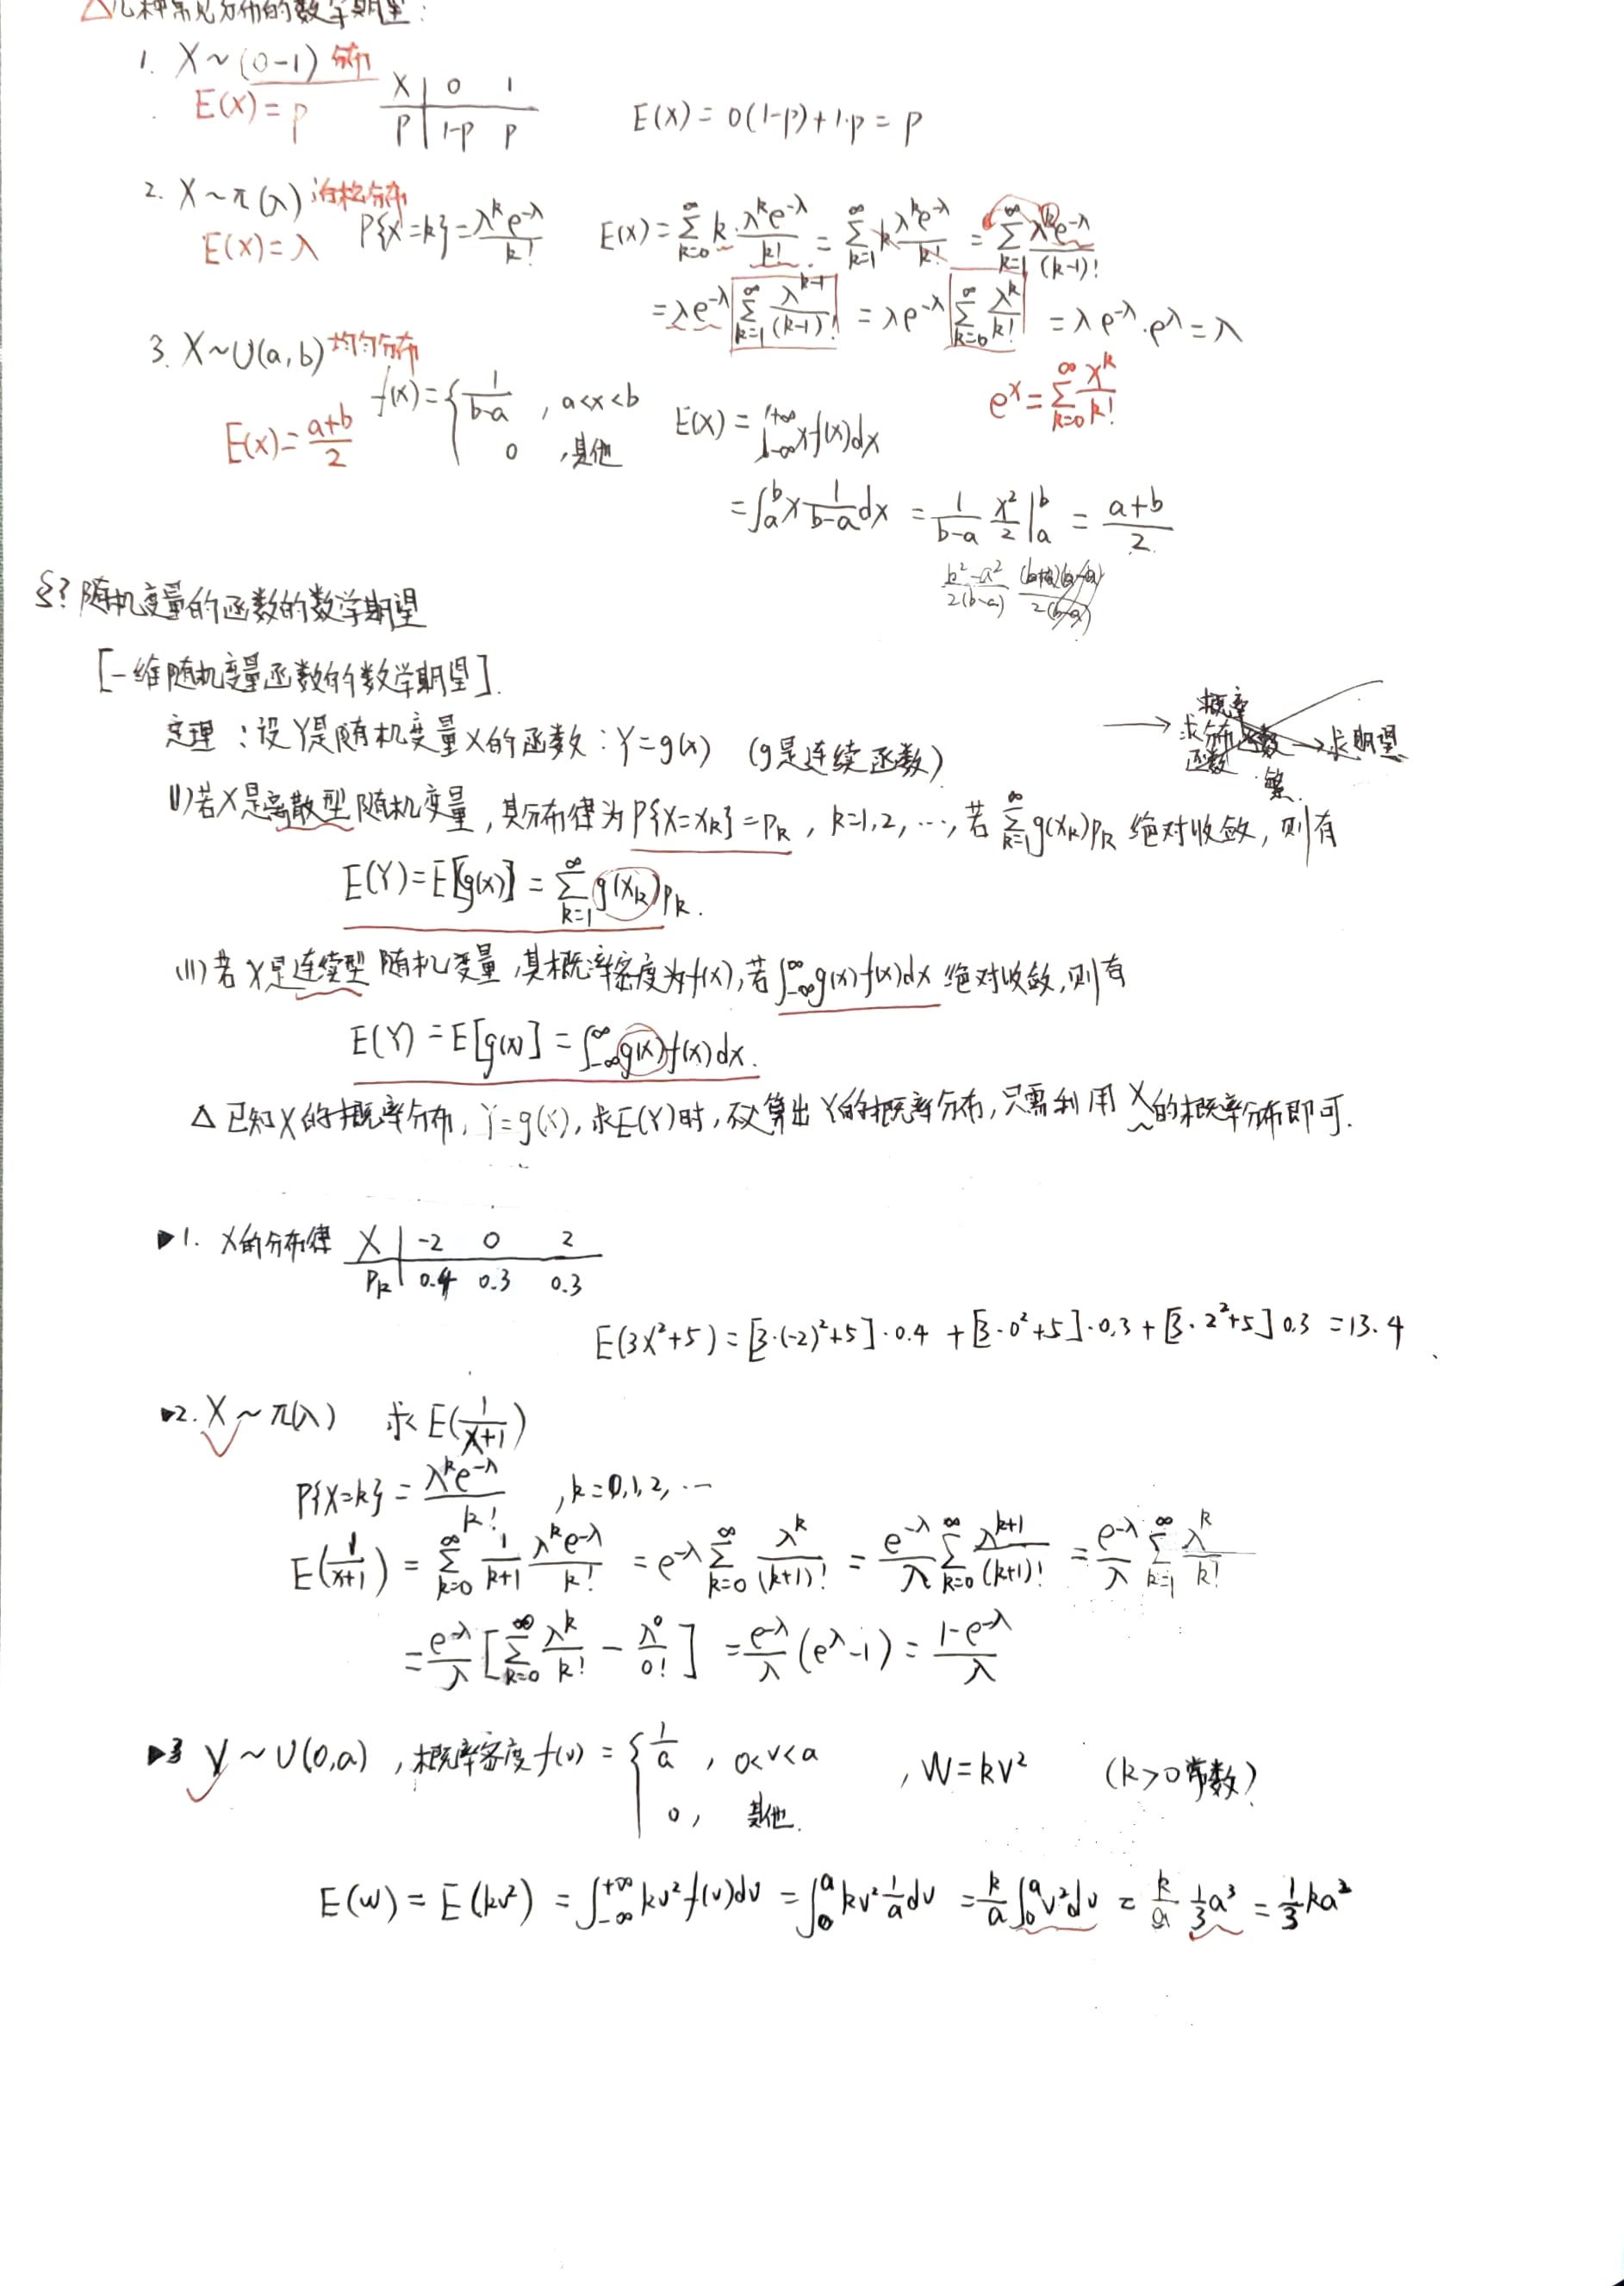 △几种常见分布的数学期望：
1. X～(0-1) 分布
E(X)=p
X | 0 1
P | 1-p p
E(X)=0(1-p)+1·p=p
2. X～π(λ) 泊松分布
E(X)=λ
P{X=k}=λ^k e^{-λ}/k!
E(X)=∑_{k=0}^{∞} k·λ^k e^{-λ}/k! = ∑_{k=1}^{∞} k λ^k e^{-λ}/k! = ∑_{k=1}^{∞} λ^k e^{-λ}/(k-1)!
=λe^{-λ} ∑_{k=1}^{∞} λ^{k-1}/(k-1)! = λe^{-λ} ∑_{k=0}^{∞} λ^k/k! = λe^{-λ}·e^λ=λ
e^x=∑_{k=0}^{∞} x^k/k!
3. X～U(a,b) 均匀分布
E(X)=(a+b)/2
f(x)={ 1/(b-a) , a<x<b
0 , 其他
E(X)=∫_{-∞}^{+∞} xf(x)dx
=∫_a^b x 1/(b-a) dx = 1/(b-a) x²/2 |_a^b = (a+b)/2
(b²-a²)/2(b-a) (b+a)(b-a)/2(b-a)
§? 随机变量的函数的数学期望
[一维随机变量函数的数学期望].
定理：设Y是随机变量X的函数：Y=g(x) (g是连续函数)
→ 求分布函数 → 求期望
概率
繁.
(I)若X是离散型随机变量，其分布律为P{X=x_k}=p_k，k=1,2,…,若 ∑_{k=1}^{∞} g(x_k)p_k 绝对收敛，则有
E(Y)=E[g(x)]=∑_{k=1}^{∞} g(x_k)p_k.
(II)若X是连续型随机变量,其概率密度为f(x),若∫_{-∞}^{∞} g(x)f(x)dx 绝对收敛,则有
E(Y)=E[g(x)]=∫_{-∞}^{∞} g(x)f(x)dx.
△ 已知X的概率分布, Y=g(X),求E(Y)时,不必算出Y的概率分布,只需利用X的概率分布即可.
▶1. X的分布律
X | -2 0 2
P_k | 0.4 0.3 0.3
E(3X²+5)=[3·(-2)²+5]·0.4+[3·0²+5]·0.3+[3·2²+5]0.3=13.4
▶2. X～π(λ) 求E(1/(X+1))
P{X=k}=λ^k e^{-λ}/k! , k=0,1,2,…
E(1/(x+1))=∑_{k=0}^{∞} 1/(k+1) λ^k e^{-λ}/k! = e^{-λ} ∑_{k=0}^{∞} λ^k/(k+1)! = e^{-λ}/λ ∑_{k=0}^{∞} λ^{k+1}/(k+1)! = e^{-λ}/λ ∑_{k=1}^{∞} λ^k/k!
=e^{-λ}/λ [∑_{k=0}^{∞} λ^k/k! - λ^0/0!] = e^{-λ}/λ (e^λ-1) = (1-e^{-λ})/λ
▶3 V～U(0,a) ,概率密度f(v)={ 1/a , 0<v<a , W=kV² (k>0常数)
0, 其他.
E(W)=E(kv²)=∫_{-∞}^{+∞} kv²f(v)dv=∫_0^a kv² 1/a dv=k/a ∫_0^a v²dv=k/a 1/3 a³=1/3 ka²